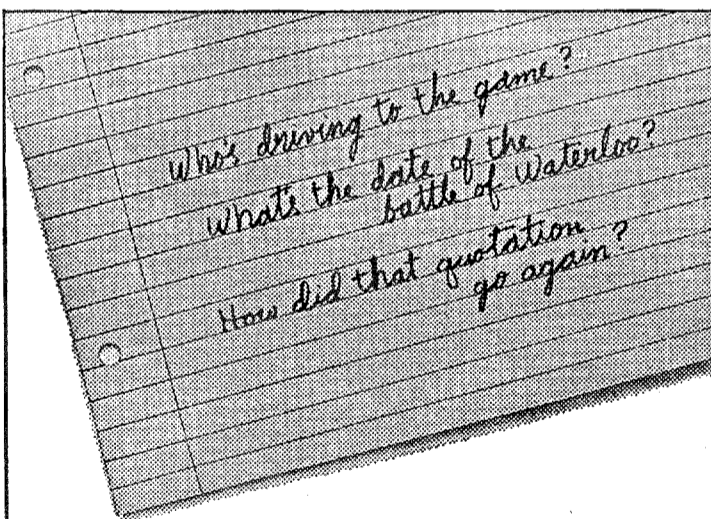 Who's driving to the game?
What's the date of the
battle of Waterloo?
How did that quotation
go again?